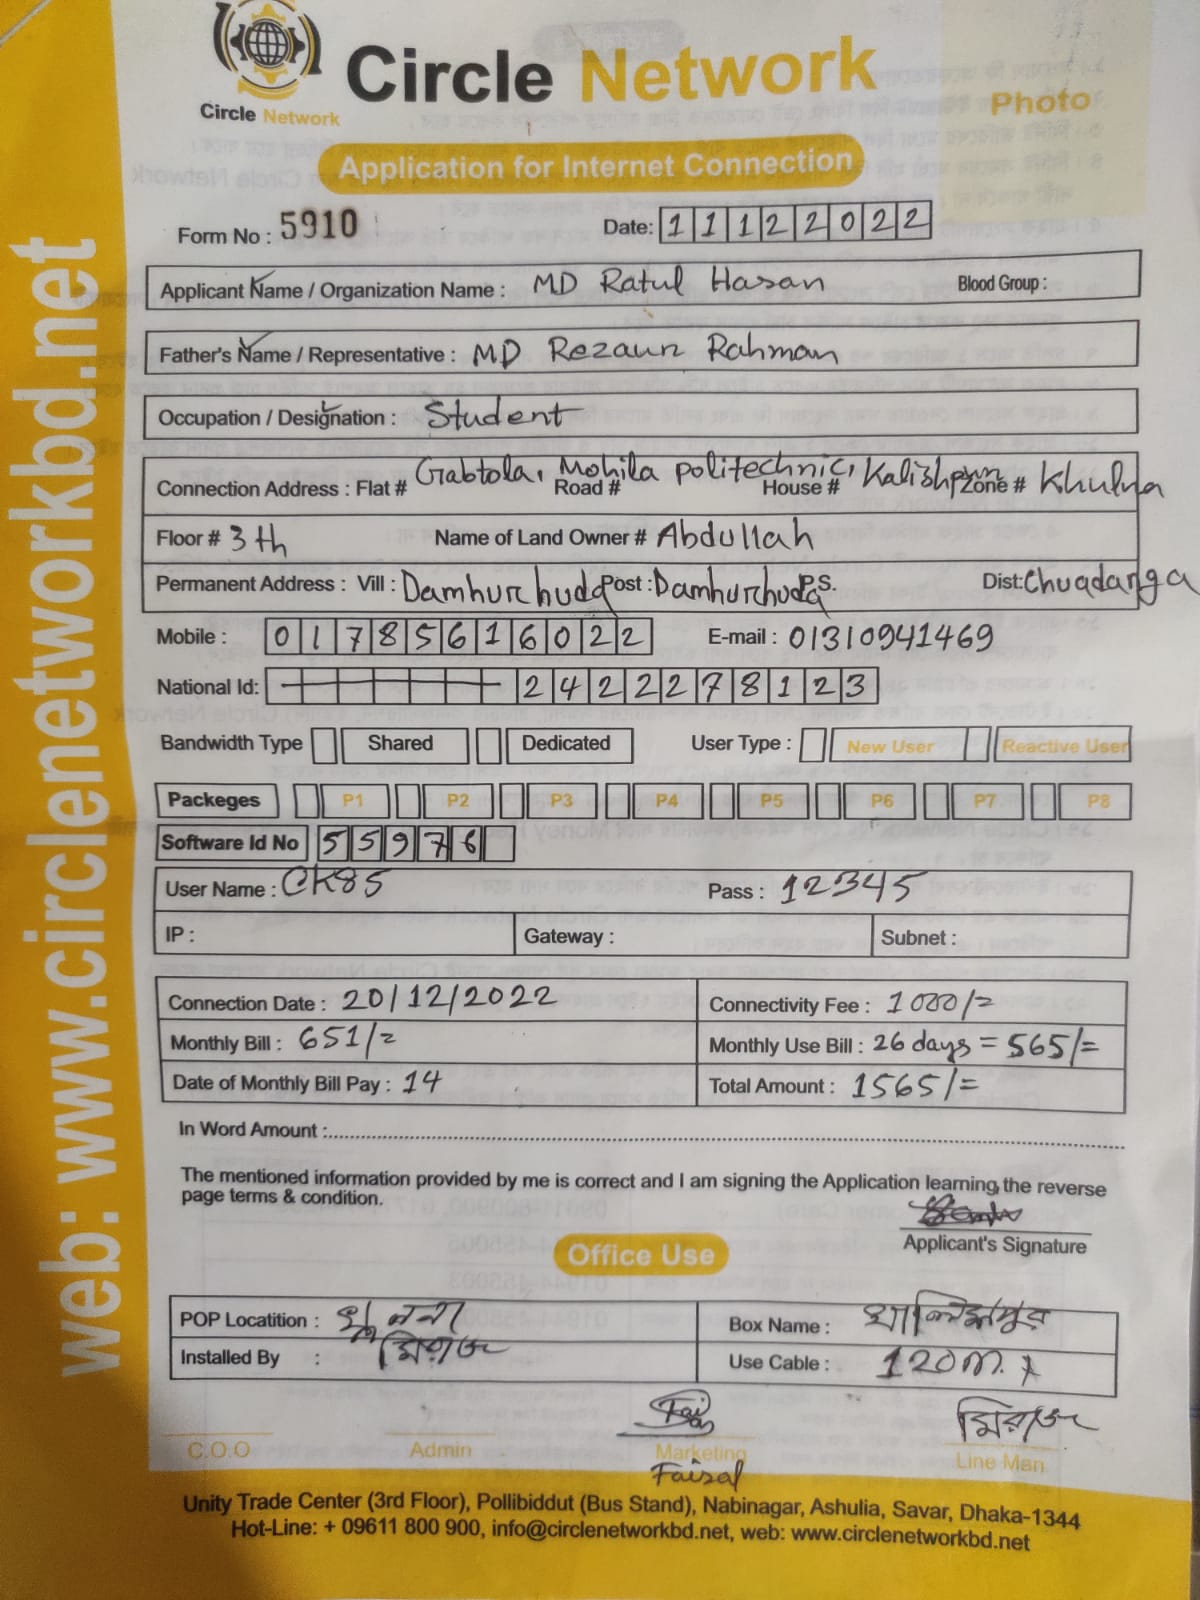 Circle Network
Circle Network
Photo
Application for Internet Connection
Form No : 5910
Date: 11122022
Applicant Name / Organization Name : MD Ratul Hasan Blood Group :
Father's Name / Representative : MD Rezaur Rahman
Occupation / Designation : Student
Connection Address : Flat # Gabtola, Road # Mohila politechnic, House # Kalishpur Zone # Khulna
Floor # 3th Name of Land Owner # Abdullah
Permanent Address : Vill : Damhurhuda Post : Damhurhuda P.S. Dist: Chuadanga
Mobile : 01785616022 E-mail : 01310941469
National Id: 2422278123
Bandwidth Type Shared Dedicated User Type : New User Reactive User
Packeges P1 P2 P3 P4 P5 P6 P7 P8
Software Id No 55976
User Name : CK85 Pass : 12345
IP : Gateway : Subnet :
Connection Date : 20/12/2022 Connectivity Fee : 1000/=
Monthly Bill : 651/= Monthly Use Bill : 26 days = 565/=
Date of Monthly Bill Pay : 14 Total Amount : 1565/=
In Word Amount :
The mentioned information provided by me is correct and I am signing the Application learning, the reverse
page terms & condition.
Applicant's Signature
Office Use
POP Locatition : খুলনা Box Name : খালিশপুর
Installed By : মিরাজ Use Cable : 120m.
মিরাজ
C.O.O Admin Marketing Line Man
Faisal
Unity Trade Center (3rd Floor), Pollibiddut (Bus Stand), Nabinagar, Ashulia, Savar, Dhaka-1344
Hot-Line: + 09611 800 900, info@circlenetworkbd.net, web: www.circlenetworkbd.net
web: www.circlenetworkbd.net